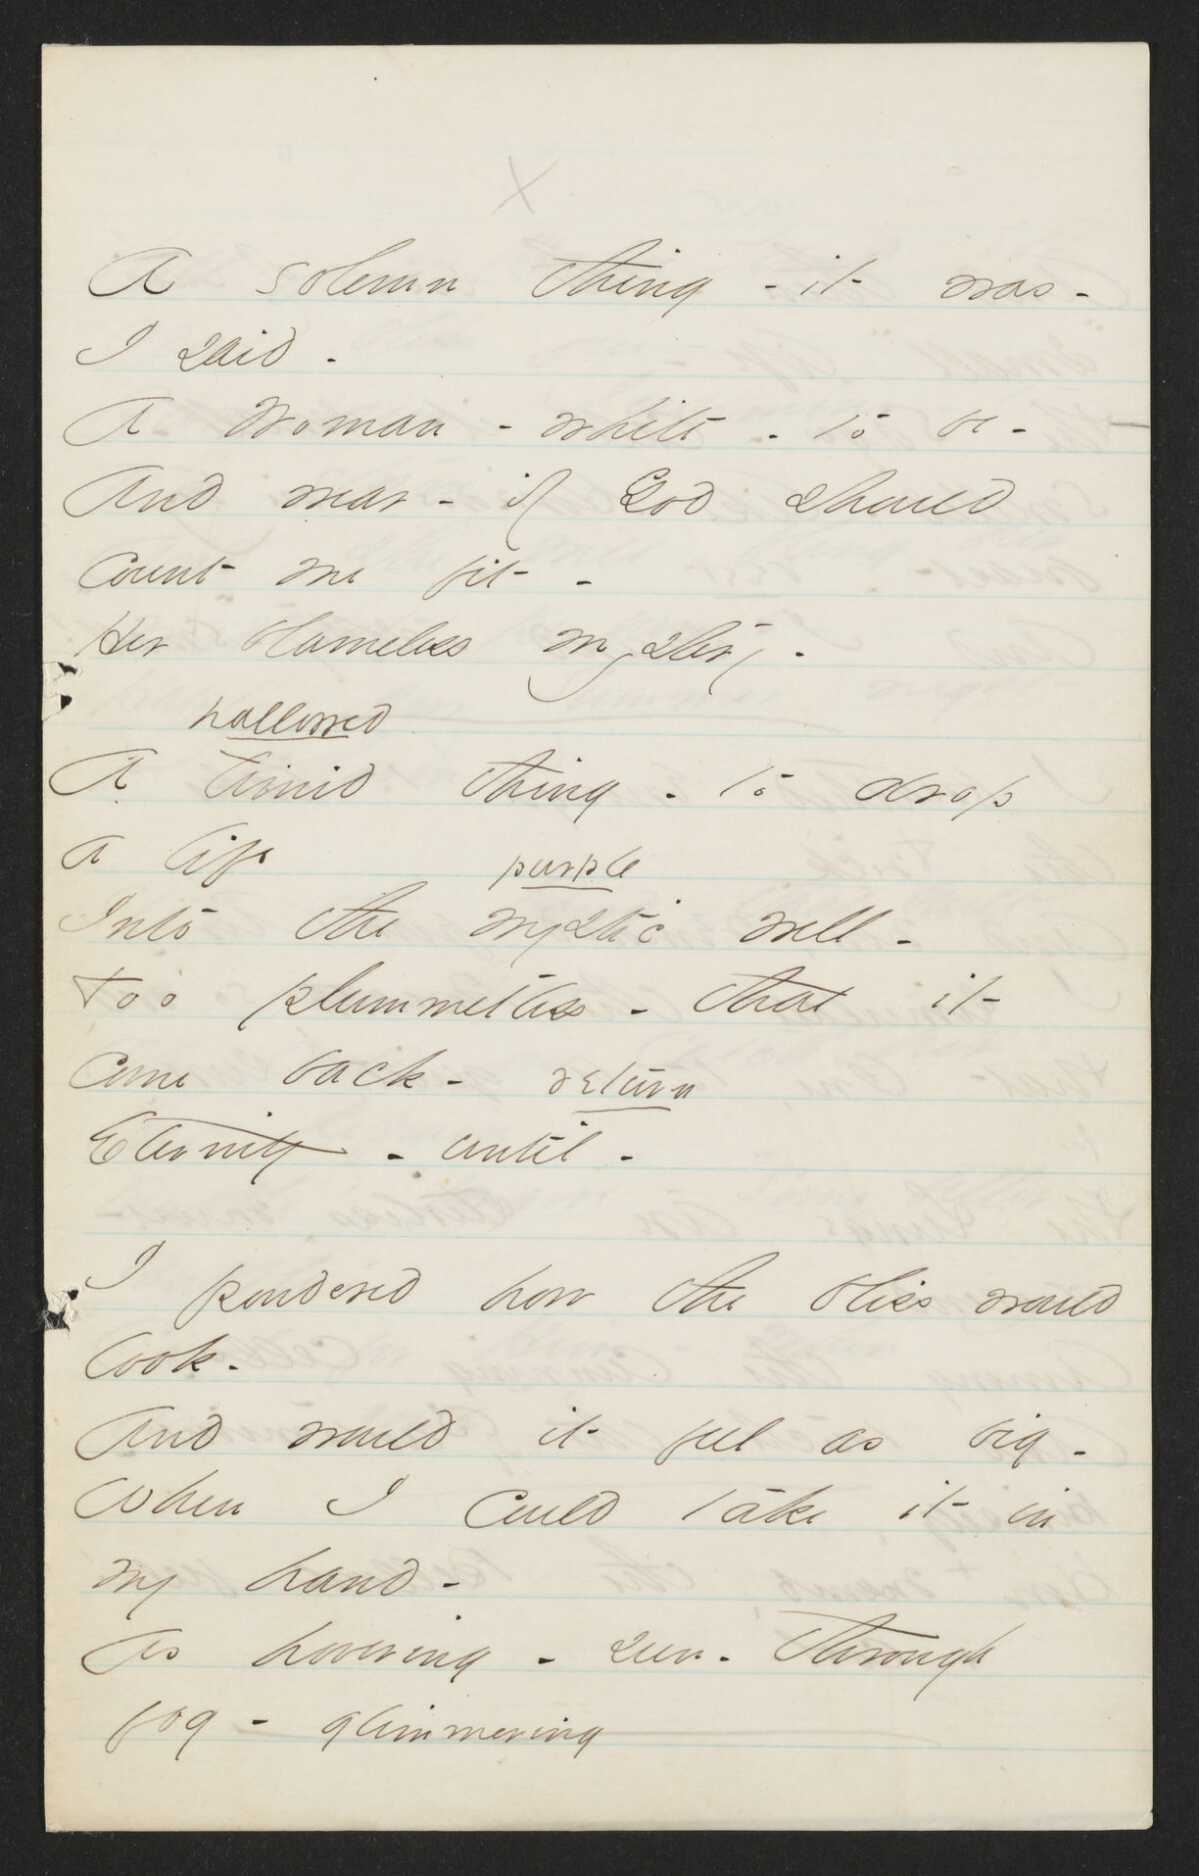 X
A solemn thing - it was -
I said -
A woman - white - to be -
And wear - if God should
count me fit -
Her blameless mystery -
hallowed
A timid thing - to drop
a life
purple
Into the mystic well -
Too plummetless - that it
come back - return
Eternity - until -
I pondered how the bliss would
look -
And would it feel as big -
When I could take it in
my hand -
As hovering - seen - through
fog - glimmering